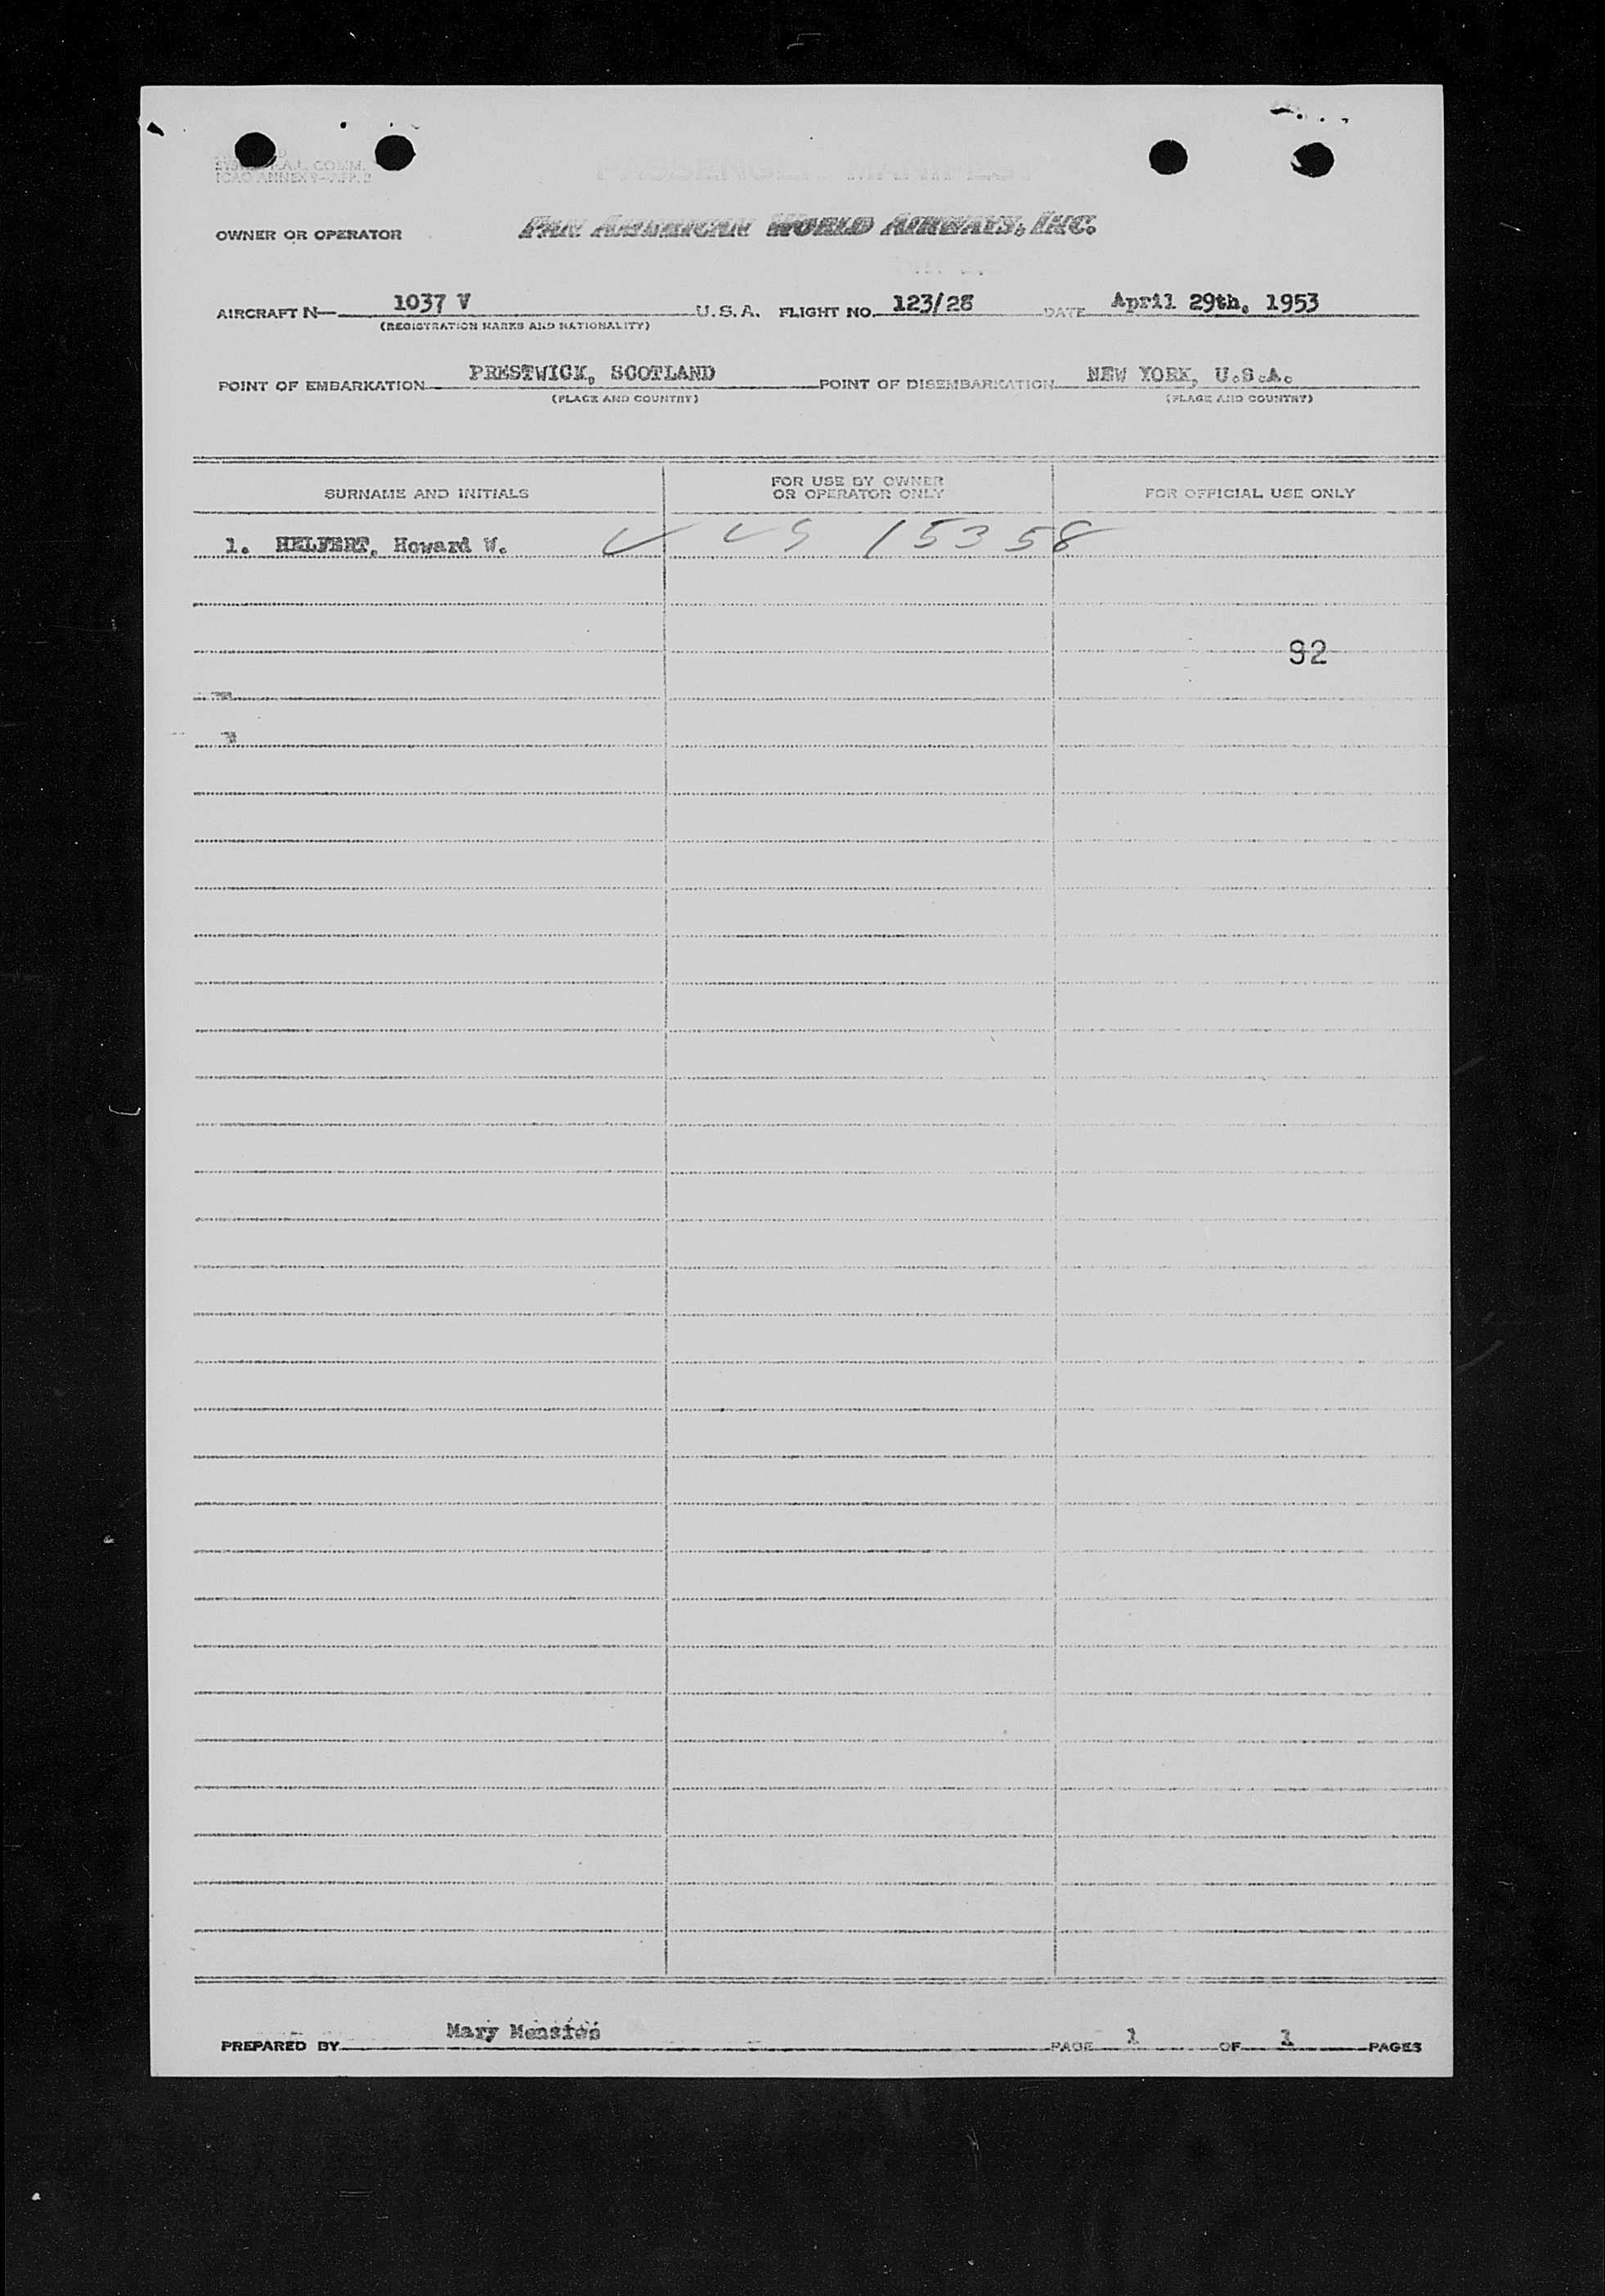 SYSTEM F.A.L. COMM.
ICAO ANNEX 9—APP. 2
OWNER OR OPERATOR PAN AMERICAN WORLD AIRWAYS, INC.
AIRCRAFT N— 1037 V U.S.A. FLIGHT NO. 123/28 DATE April 29th, 1953
(REGISTRATION MARKS AND NATIONALITY)
POINT OF EMBARKATION PRESTWICK, SCOTLAND POINT OF DISEMBARKATION NEW YORK, U.S.A.
(PLACE AND COUNTRY) (PLACE AND COUNTRY)
SURNAME AND INITIALS FOR USE BY OWNER OR OPERATOR ONLY FOR OFFICIAL USE ONLY
1. HELFERT, Howard W. 15358
92
PREPARED BY Mary Menzies PAGE 1 OF 1 PAGES